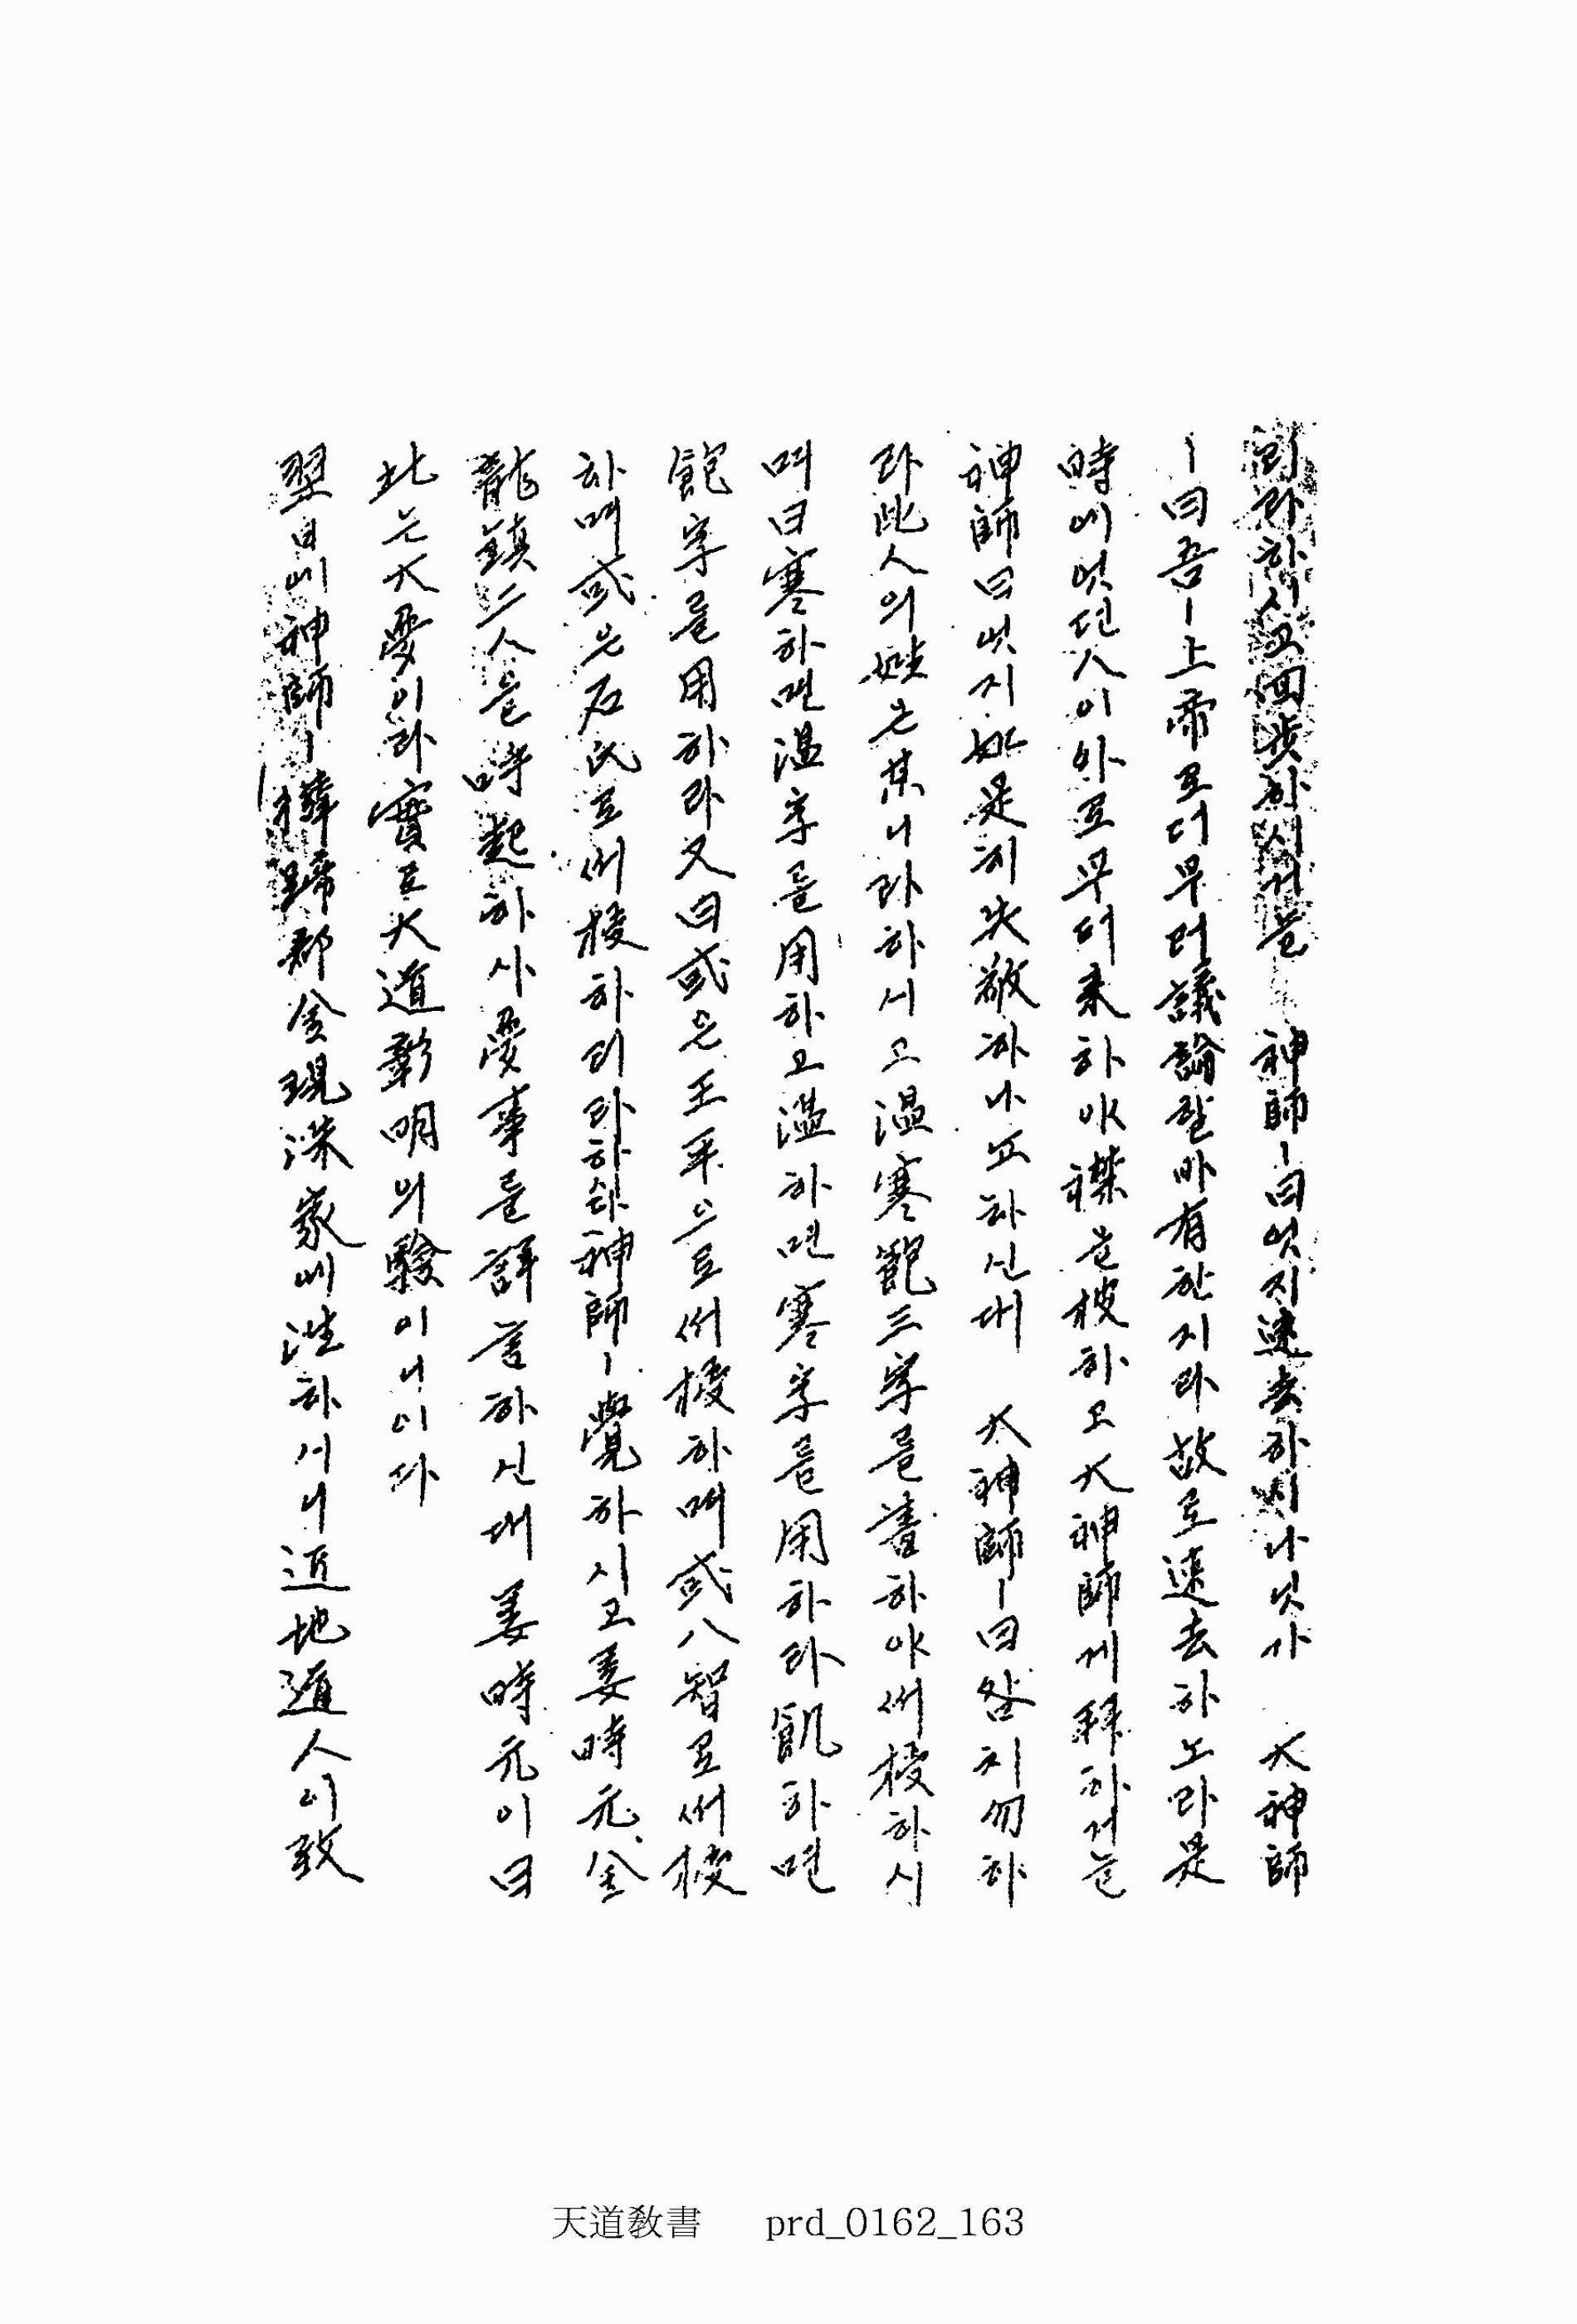 리라하시고回步하시거늘 神師ㅣ曰엇지速去하시나닛가 大神師
ㅣ曰吾ㅣ上帝로더부러議論할바有한지라故로速去하노라是
時에엇던人이외로부터來하야襟을披하고大神師께拜하거늘
神師曰엇지如是히失敬하나뇨하신대 大神師ㅣ曰咎치勿하
라此人의姓은某니라하시고溫寒飽三字를書하야써授하시
며曰寒하면溫字를用하고溫하면寒字를用하라飢하면
飽字를用하라又曰或은王平으로써授하며或八智로써授
하며或은石氏로써授하리라하신神師ㅣ覺하시고姜時元金
龍鎭二人을呼起하사夢事를詳言하신대姜時元이曰
此는大夢이라實로大道彰明의驗이니이다
翌日에神師ㅣ麟蹄郡金現洙家에往하시니近地道人이致
天道敎書 prd_0162_163